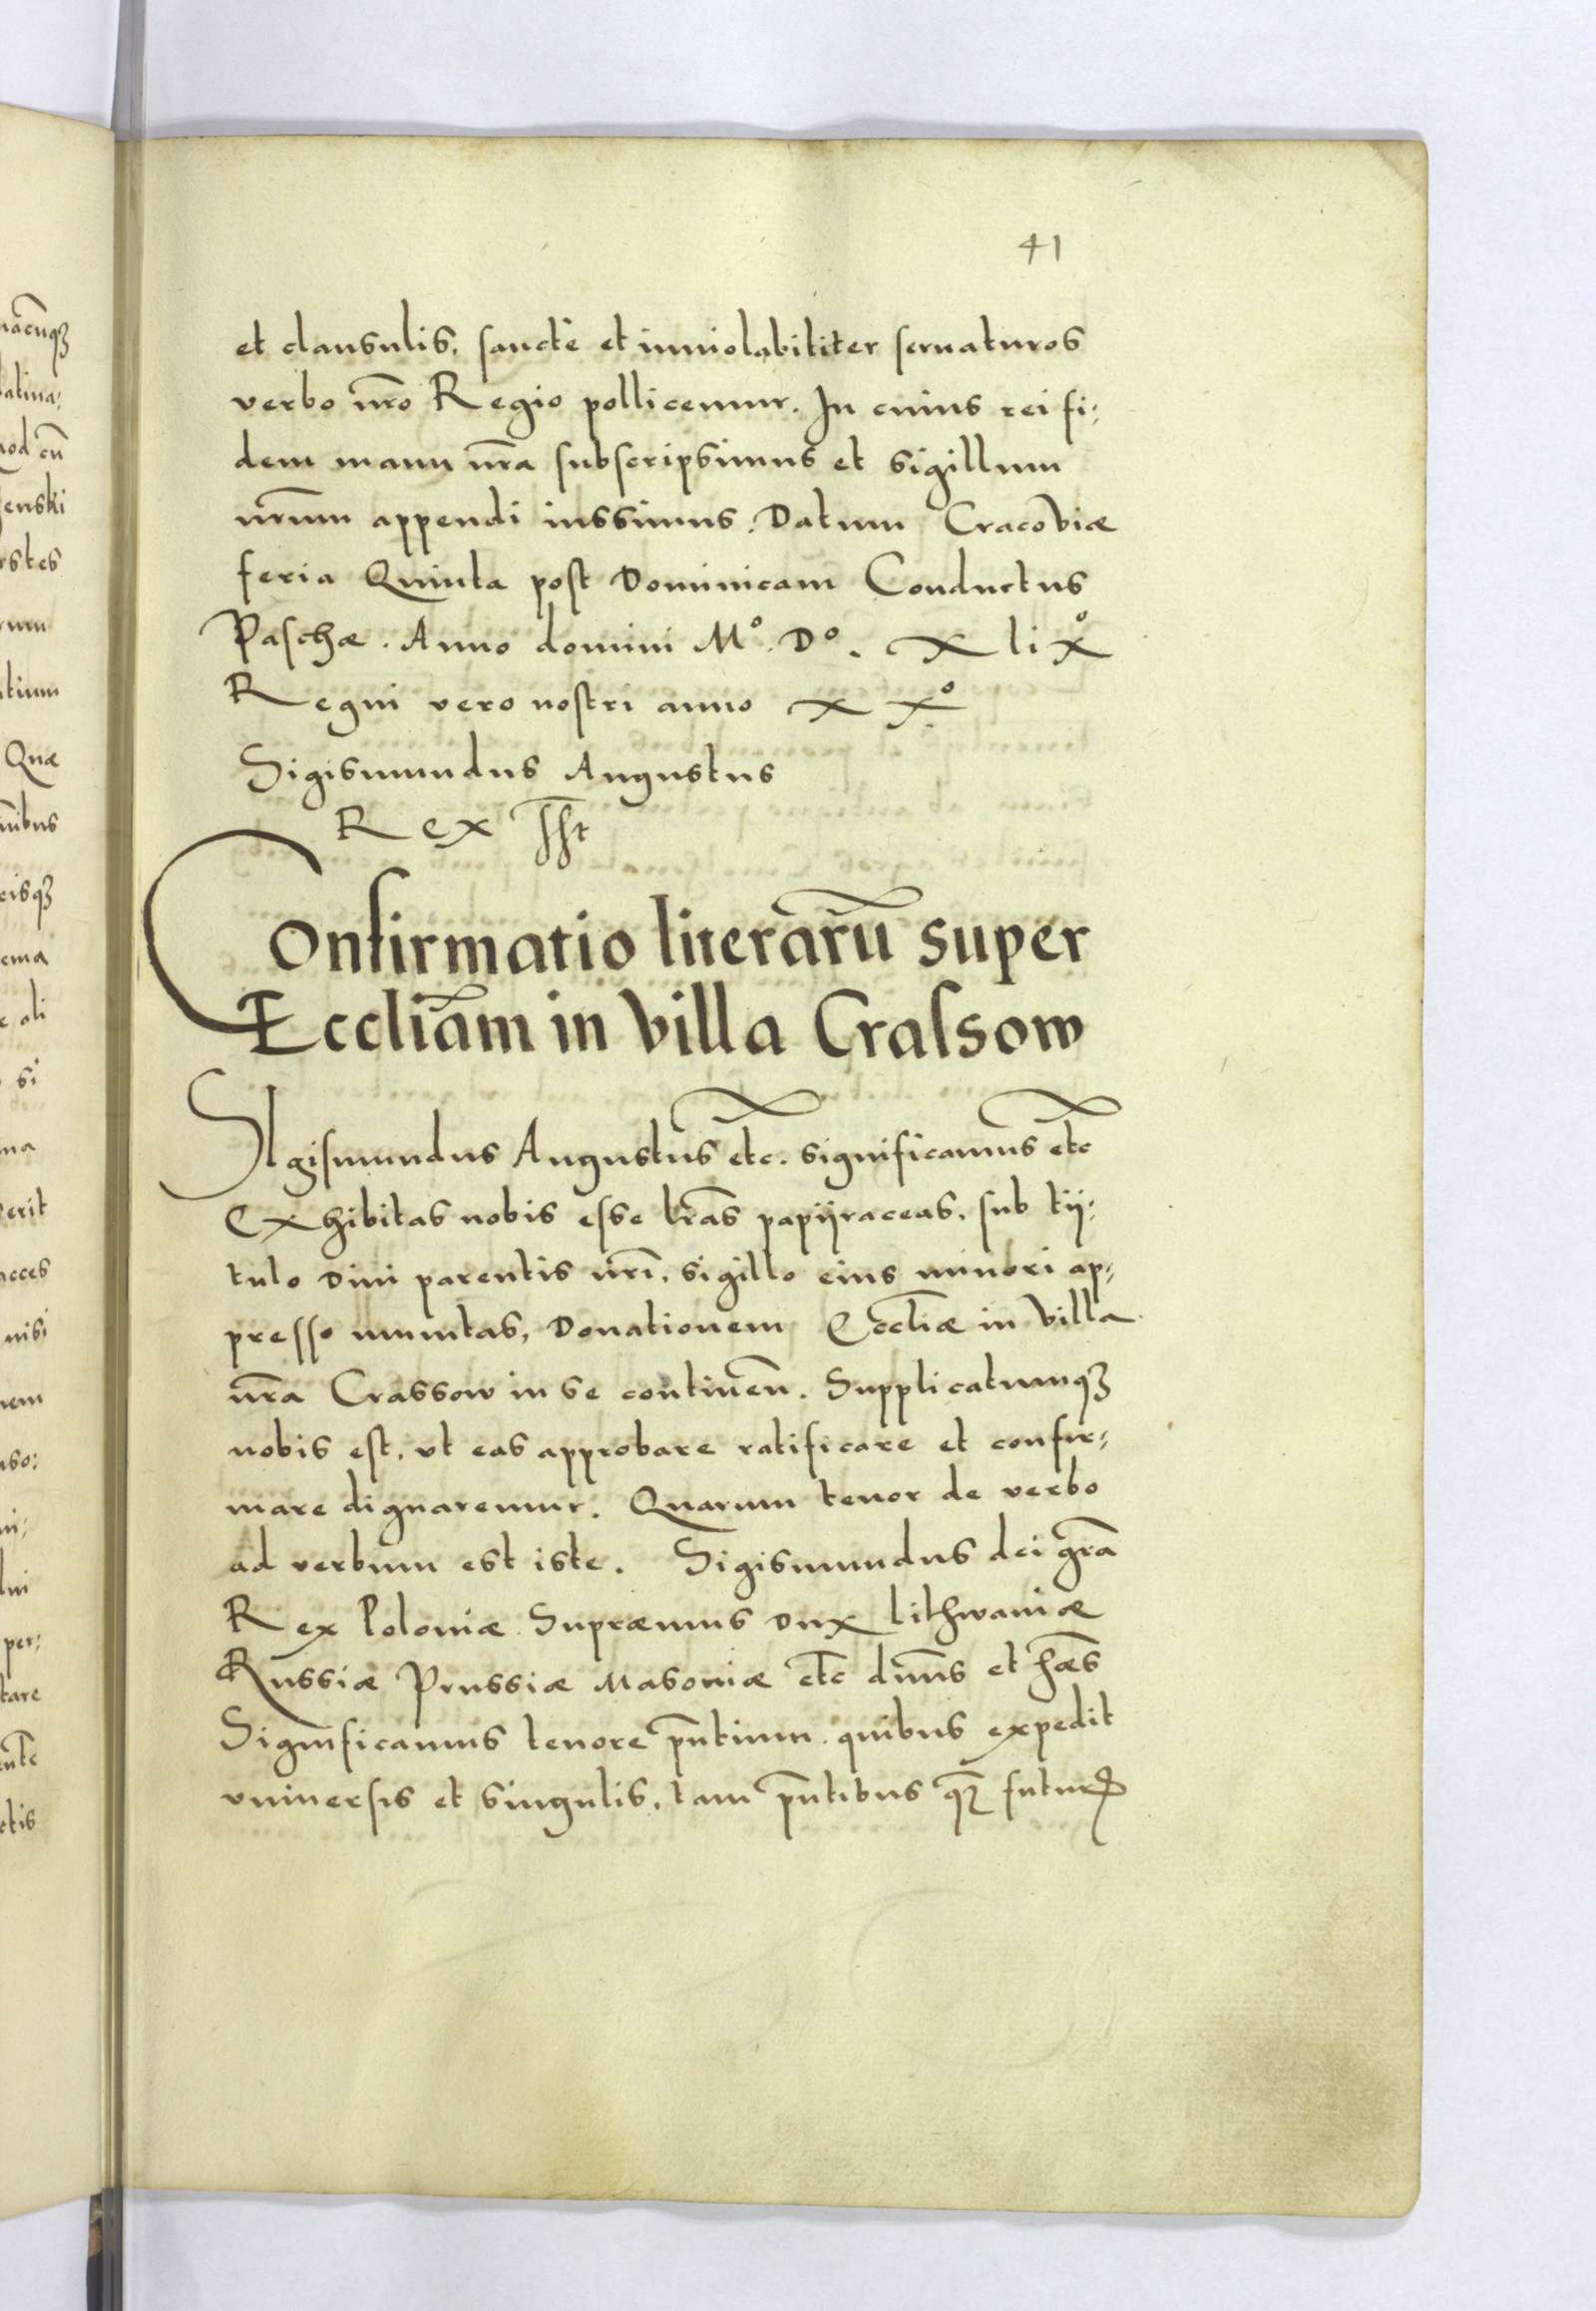 41
et clausulis, sanctè et inuiolabiliter seruaturos
verbo nr̃o Regio pollicemur. In cuius rei fi-
dem manu nr̃a subscripsimus et sigillum
nr̃um appendi iussimus. Datum Cracoviæ
feria Quinta post Dominicam Conductus
Paschæ. Anno domini Mº. Dº. xlixº
Regni vero nostri anno xxº
Sigismundus Augustus
Rex sst
Confirmatio literarũ super
Eccliãm in villa Crassow
SIgismundus Augustus etc. significamus etc
Exhibitas nobis esse lr̃as papijraceas, sub tij-
tulo Diui parentis nr̃i, sigillo eius minori ap-
presso munitas, Donationem Eccliæ in villa
nr̃a Crassow in se continen̄. Supplicatumqꝫ
nobis est, vt eas approbare ratificare et confir-
mare dignaremur. Quarum tenor de verbo
ad verbum est iste. Sigismundus dei gr̃a
Rex Poloniæ Supræmus Dux Lithwaniæ
Russiæ Prussiæ Masoviæ etc dñus et hæ̃s
Significamus tenore pñtium quibus expedit
vniuersis et singulis, tam pñtibus qꝫ̃ futurꝭ